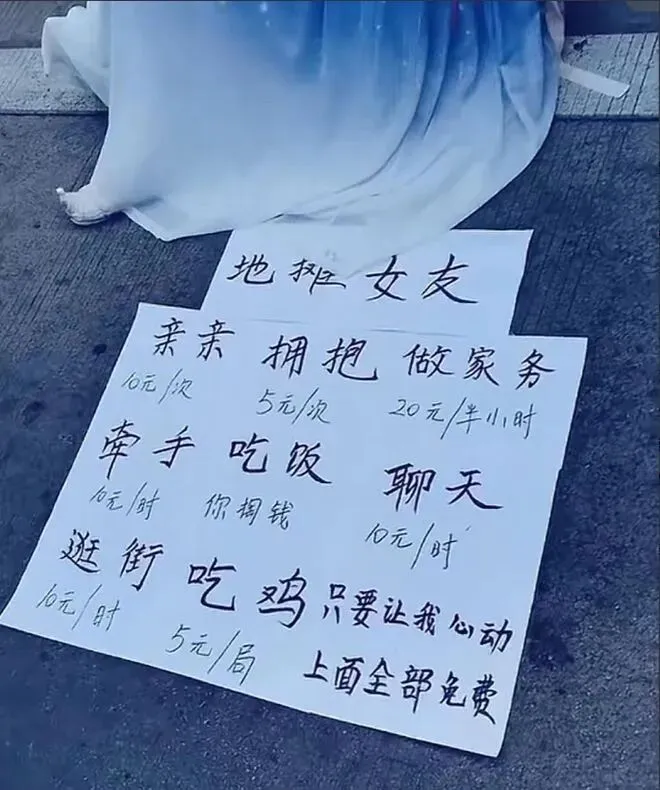 地摊女友
亲亲 拥抱 做家务
10元/次 5元/次 20元/半小时
牵手 吃饭 聊天
10元/时 你掏钱 10元/时
逛街 吃鸡 只要让我心动
10元/时 5元/局 上面全部免费